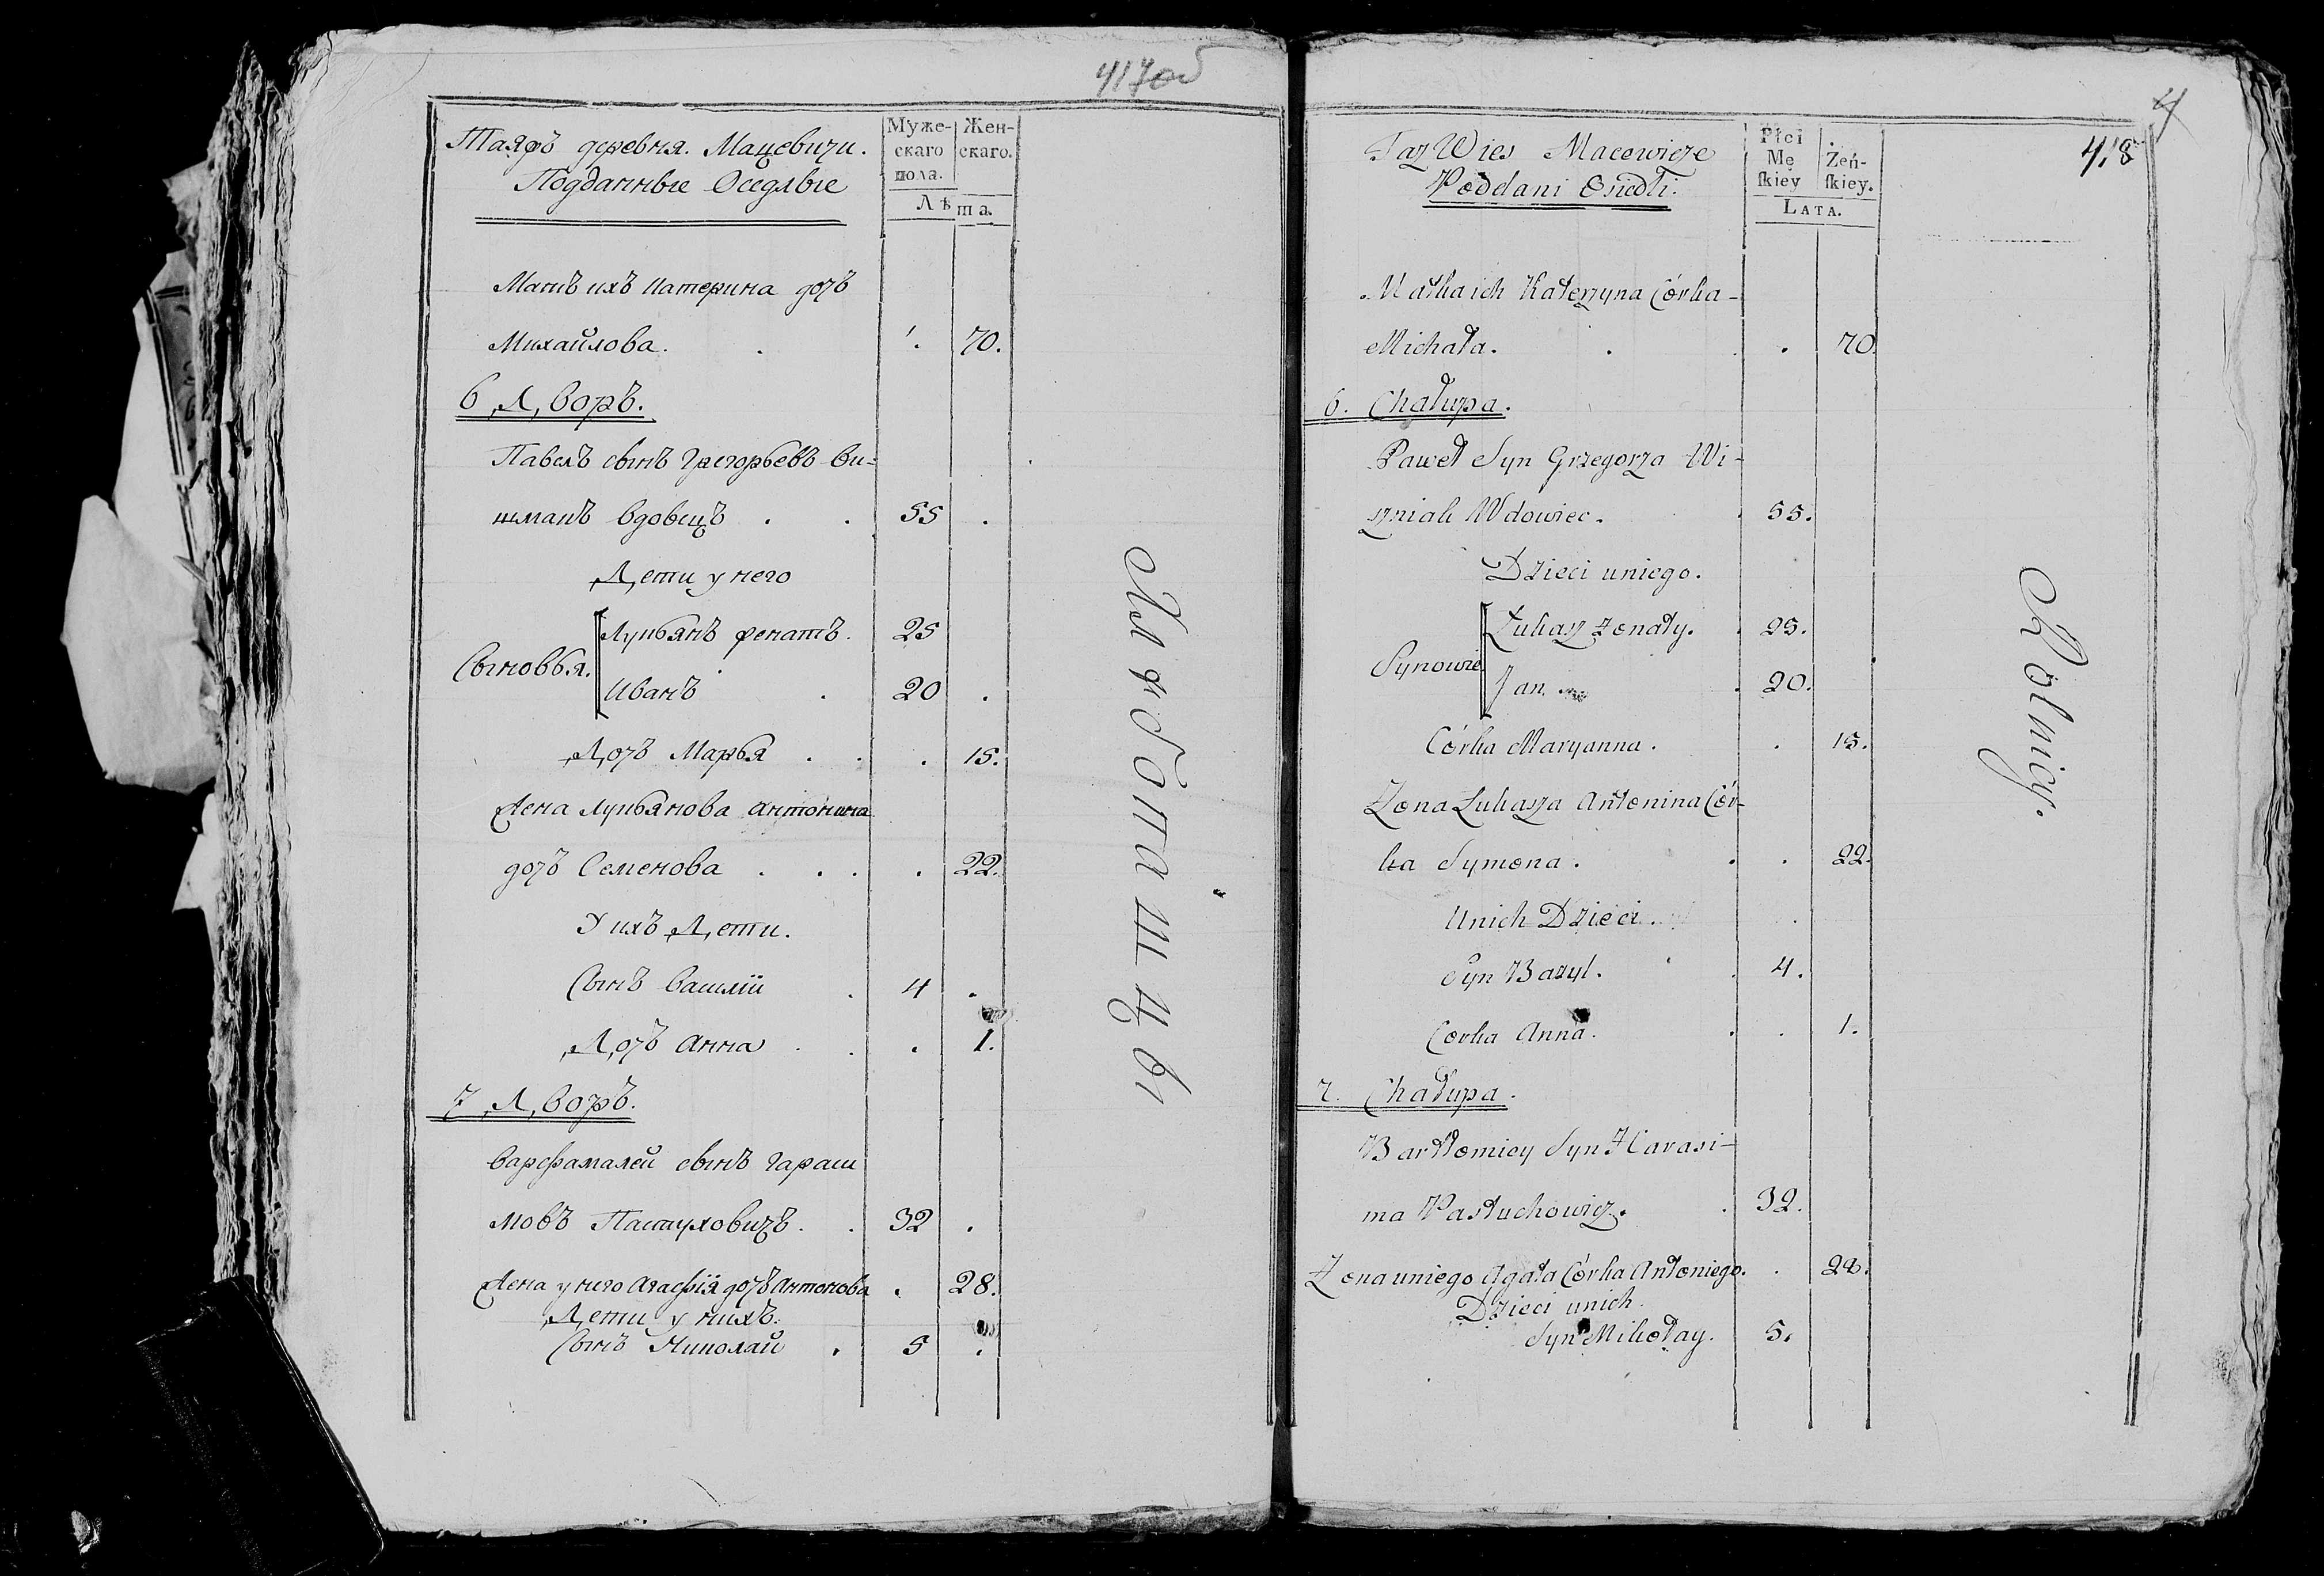 417об
Таяжъ деревня. Мацевичи.
Подданные Оседлые
Муже-
скаго
пола.
Жен-
скаго.
Лѣта.
Мать ихъ Катерина дочь
Михайлова. . . 70.
6 Дворъ.
Павелъ сынъ Григорьевъ Ви-
шманъ вдовецъ . . 55 .
Дети у него
Сыновья.
Лукьянъ женатъ. 25
Иванъ . 20 .
Дочь Марья . . . 15.
Жена Лукьянова Антонина
дочь Семенова . . . . 22.
У ихъ Дети.
Сынъ Василій . 4 .
Дочь Анна . . . 1.
7 Дворъ.
Варфамалей сынъ Гараси
мовъ Пастуховичъ. . 32 .
Жена у него Агафія дочь Антонова . 28.
Дети у нихъ.
Сынъ Николай . 5 .
4
418
Taż Wies Macewicze
Poddani Osiedli.
Płci
Mę
ſkiey
Żeń-
ſkiey.
LATA.
Matka ich Katerzyna Córka-
Michała. . . 70.
6. Chałupa.
Paweł Syn Grzegorza Wi-
szniak Wdowiec. . 55.
Dzieci uniego.
Synowie
Łukasz żonaty. . 25.
Jan. . 20.
Córka Maryanna. . 15.
Żona Łukasza Antonina Cór-
ka Symona. . . 22.
Unich Dzieci.
Syn Bazyl. . 4.
Corka Anna. . . 1.
7. Chałupa.
Bartłomiey Syn Harasi-
ma Pastuchowicz. . 32.
Żona uniego Agata Córka Antoniego. . 28.
Dzieci unich.
Syn Mikołay. 5.
Rolnicy.